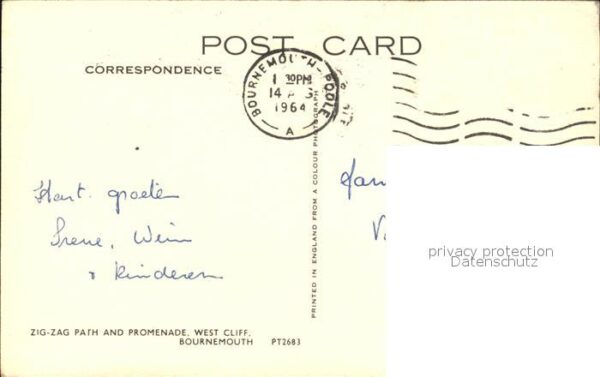 POST CARD
CORRESPONDENCE
BOURNEMOUTH - POOLE
1 30PM
14
1964
A
Hart. groeten
Irene, Wim
& kinderen
PRINTED IN ENGLAND FROM A COLOUR PHOTOGRAPH
privacy protection
Datenschutz
ZIG-ZAG PATH AND PROMENADE, WEST CLIFF,
BOURNEMOUTH PT2683